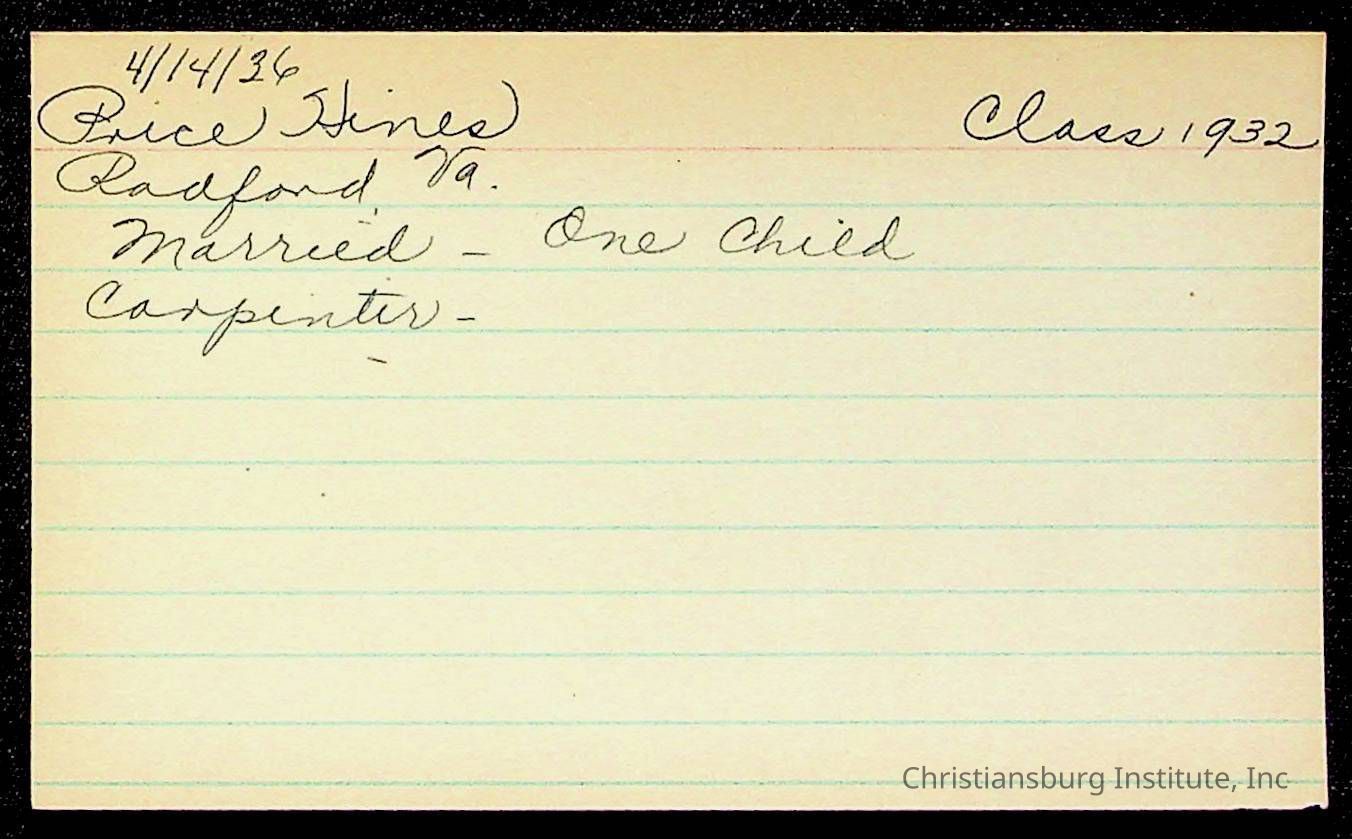 4/14/36
Price Hines Class 1932
Radford Va.
Married - One Child
Carpenter -
Christiansburg Institute, Inc